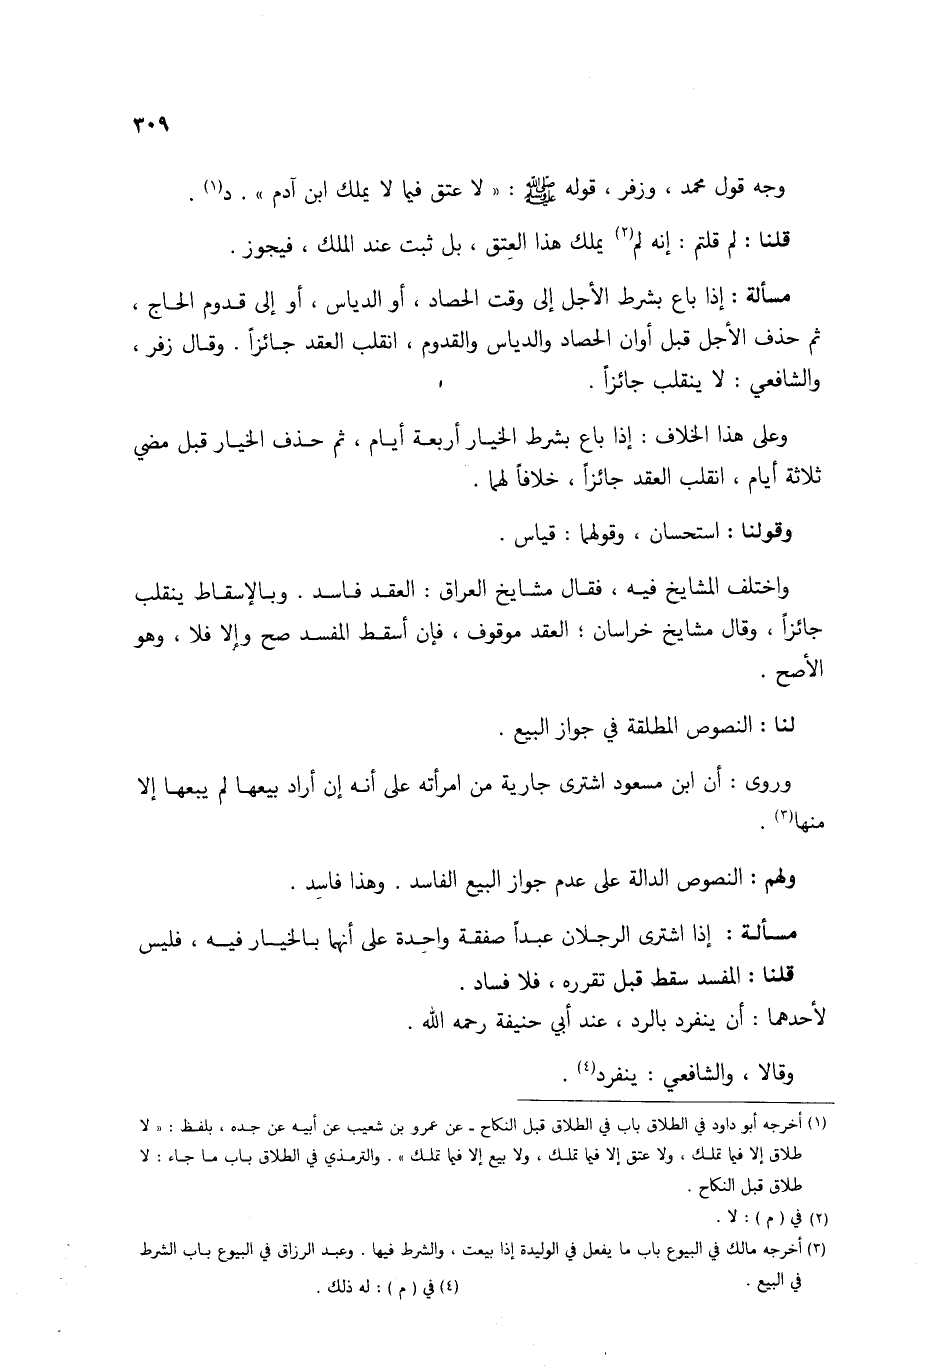 ٣٠٩
وجه قول محمد ، وزفر ، قوله ﷺ : « لا عتق فيما لا يملك ابن آدم » . د(١) .
قلنا : لم قلتم : إنه لم(٢) يملك هذا العتق ، بل ثبت عند الملك ، فيجوز .
مسألة : إذا باع بشرط الأجل إلى وقت الحصاد ، أو الدياس ، أو إلى قدوم الحاج ،
ثم حذف الأجل قبل أوان الحصاد والدياس والقدوم ، انقلب العقد جائزاً . وقال زفر ،
والشافعي : لا ينقلب جائزاً .
وعلى هذا الخلاف : إذا باع بشرط الخيار أربعة أيام ، ثم حذف الخيار قبل مضي
ثلاثة أيام ، انقلب العقد جائزاً ، خلافاً لهما .
وقولنا : استحسان ، وقولهما : قياس .
واختلف المشايخ فيه ، فقال مشايخ العراق : العقد فاسد . وبالإسقاط ينقلب
جائزاً ، وقال مشايخ خراسان ؛ العقد موقوف ، فإن أسقط المفسد صح وإلا فلا ، وهو
الأصح .
لنا : النصوص المطلقة في جواز البيع .
وروى : أن ابن مسعود اشترى جارية من امرأته على أنه إن أراد بيعها لم يبعها إلا
منها(٣) .
ولهم : النصوص الدالة على عدم جواز البيع الفاسد . وهذا فاسد .
مسألة : إذا اشترى الرجلان عبداً صفقة واحدة على أنهما بالخيار فيه ، فليس
قلنا : المفسد سقط قبل تقرره ، فلا فساد .
لأحدهما : أن ينفرد بالرد ، عند أبي حنيفة رحمه الله .
وقالا ، والشافعي : ينفرد(٤) .
(١) أخرجه أبو داود في الطلاق باب في الطلاق قبل النكاح ـ عن عمرو بن شعيب عن أبيه عن جده ، بلفظ : « لا
طلاق إلا فيما تملك ، ولا عتق إلا فيما تملك ، ولا بيع إلا فيما تملك » . والترمذي في الطلاق باب ما جاء : لا
طلاق قبل النكاح .
(٢) في ( م ) : لا .
(٣) أخرجه مالك في البيوع باب ما يفعل في الوليدة إذا بيعت ، والشرط فيها . وعبد الرزاق في البيوع باب الشرط
في البيع . (٤) في ( م ) : له ذلك .